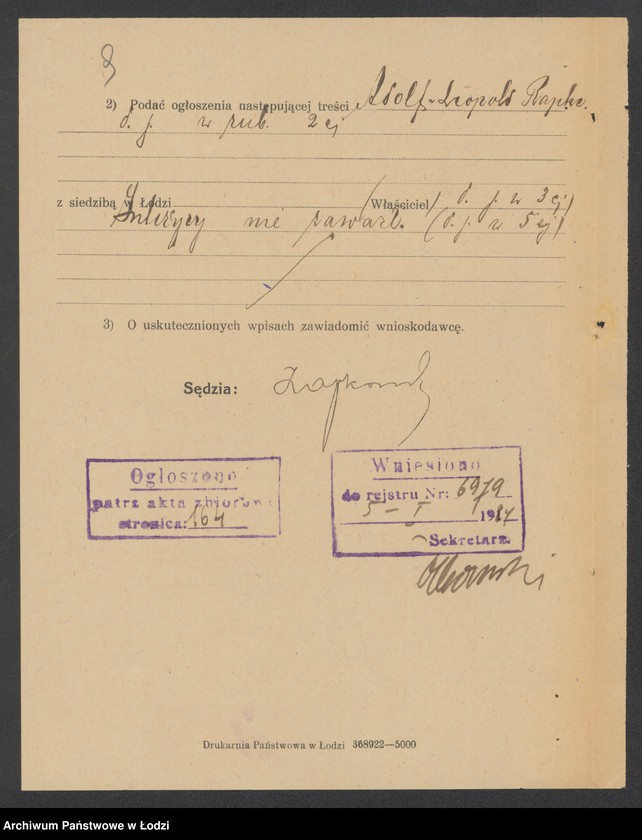 2) Podać ogłoszenia następującej treści Adolf-Leopold Rapke.
d. j. w rub. 2 ej
z siedzibą w Łodzi (Właściciel) d. j. w 3 ej)
Intercyzy nie zawarł. (d. j. w 5 ej)
3) O uskutecznionych wpisach zawiadomić wnioskodawcę.
Sędzia:
Ogłoszono
patrz akta zbiorowe
stronica: 164
Wniesiono
do rejstru Nr: 6979
5 – I 1937
Sekretarz.
Drukarnia Państwowa w Łodzi 368922—5000
Archiwum Państwowe w Łodzi